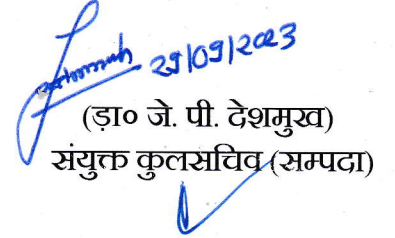 29/09/2023
(ड़ा० जे. पी. देशमुख)
संयुक्त कुलसचिव (सम्पदा)